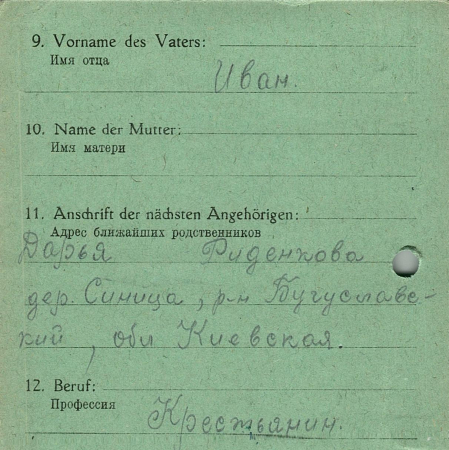 9. Vorname des Vaters:
Имя отца
Иван.
10. Name der Mutter:
Имя матери
11. Anschrift der nächsten Angehörigen:
Адрес ближайших родственников
Дарья Риденкова
дер. Синица, р-н Бугуславс-
кий, обл Киевская.
12. Beruf:
Профессия
Крестьянин.